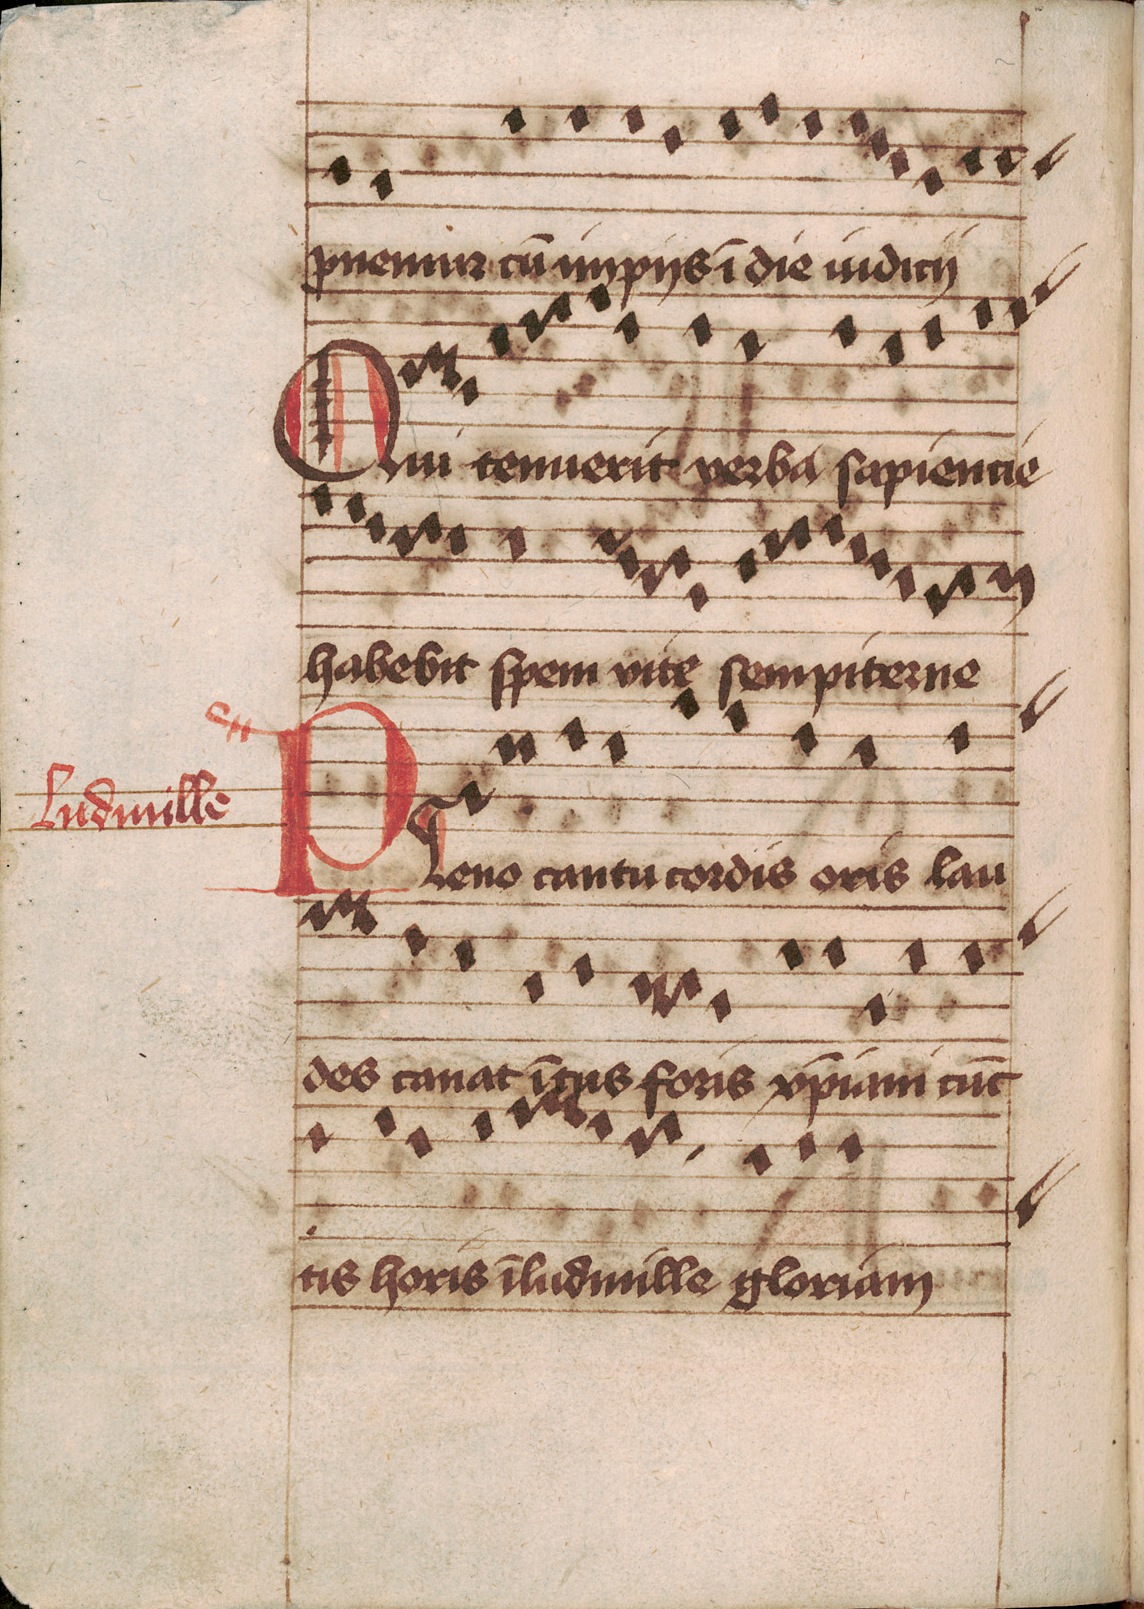 pnemur cū impijs ī die iudicij
Qui tenuerit verba sapiencie
habebit spem vite sempiterne
Ludmille
Pleno cantu cordis oris lau
des canat ītus foris xp̄iani cūc
tis horis ī ludmille gloriam